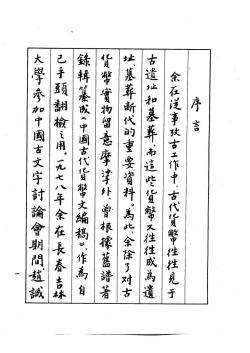 序言
余在從事攷古工作中，古代貨幣往往見于
古遺址和墓葬，而這些貨幣又往往成為遺
址、墓葬斷代的重要資料。為此，余除了對古
貨幣實物留意摩挲外，曾根據舊譜著
錄輯纂成《中國古代貨幣文編稿》，作為自
己手頭翻檢之用。一九七八年余在長春吉林
大學參加中國古文字討論會期間，趙誠